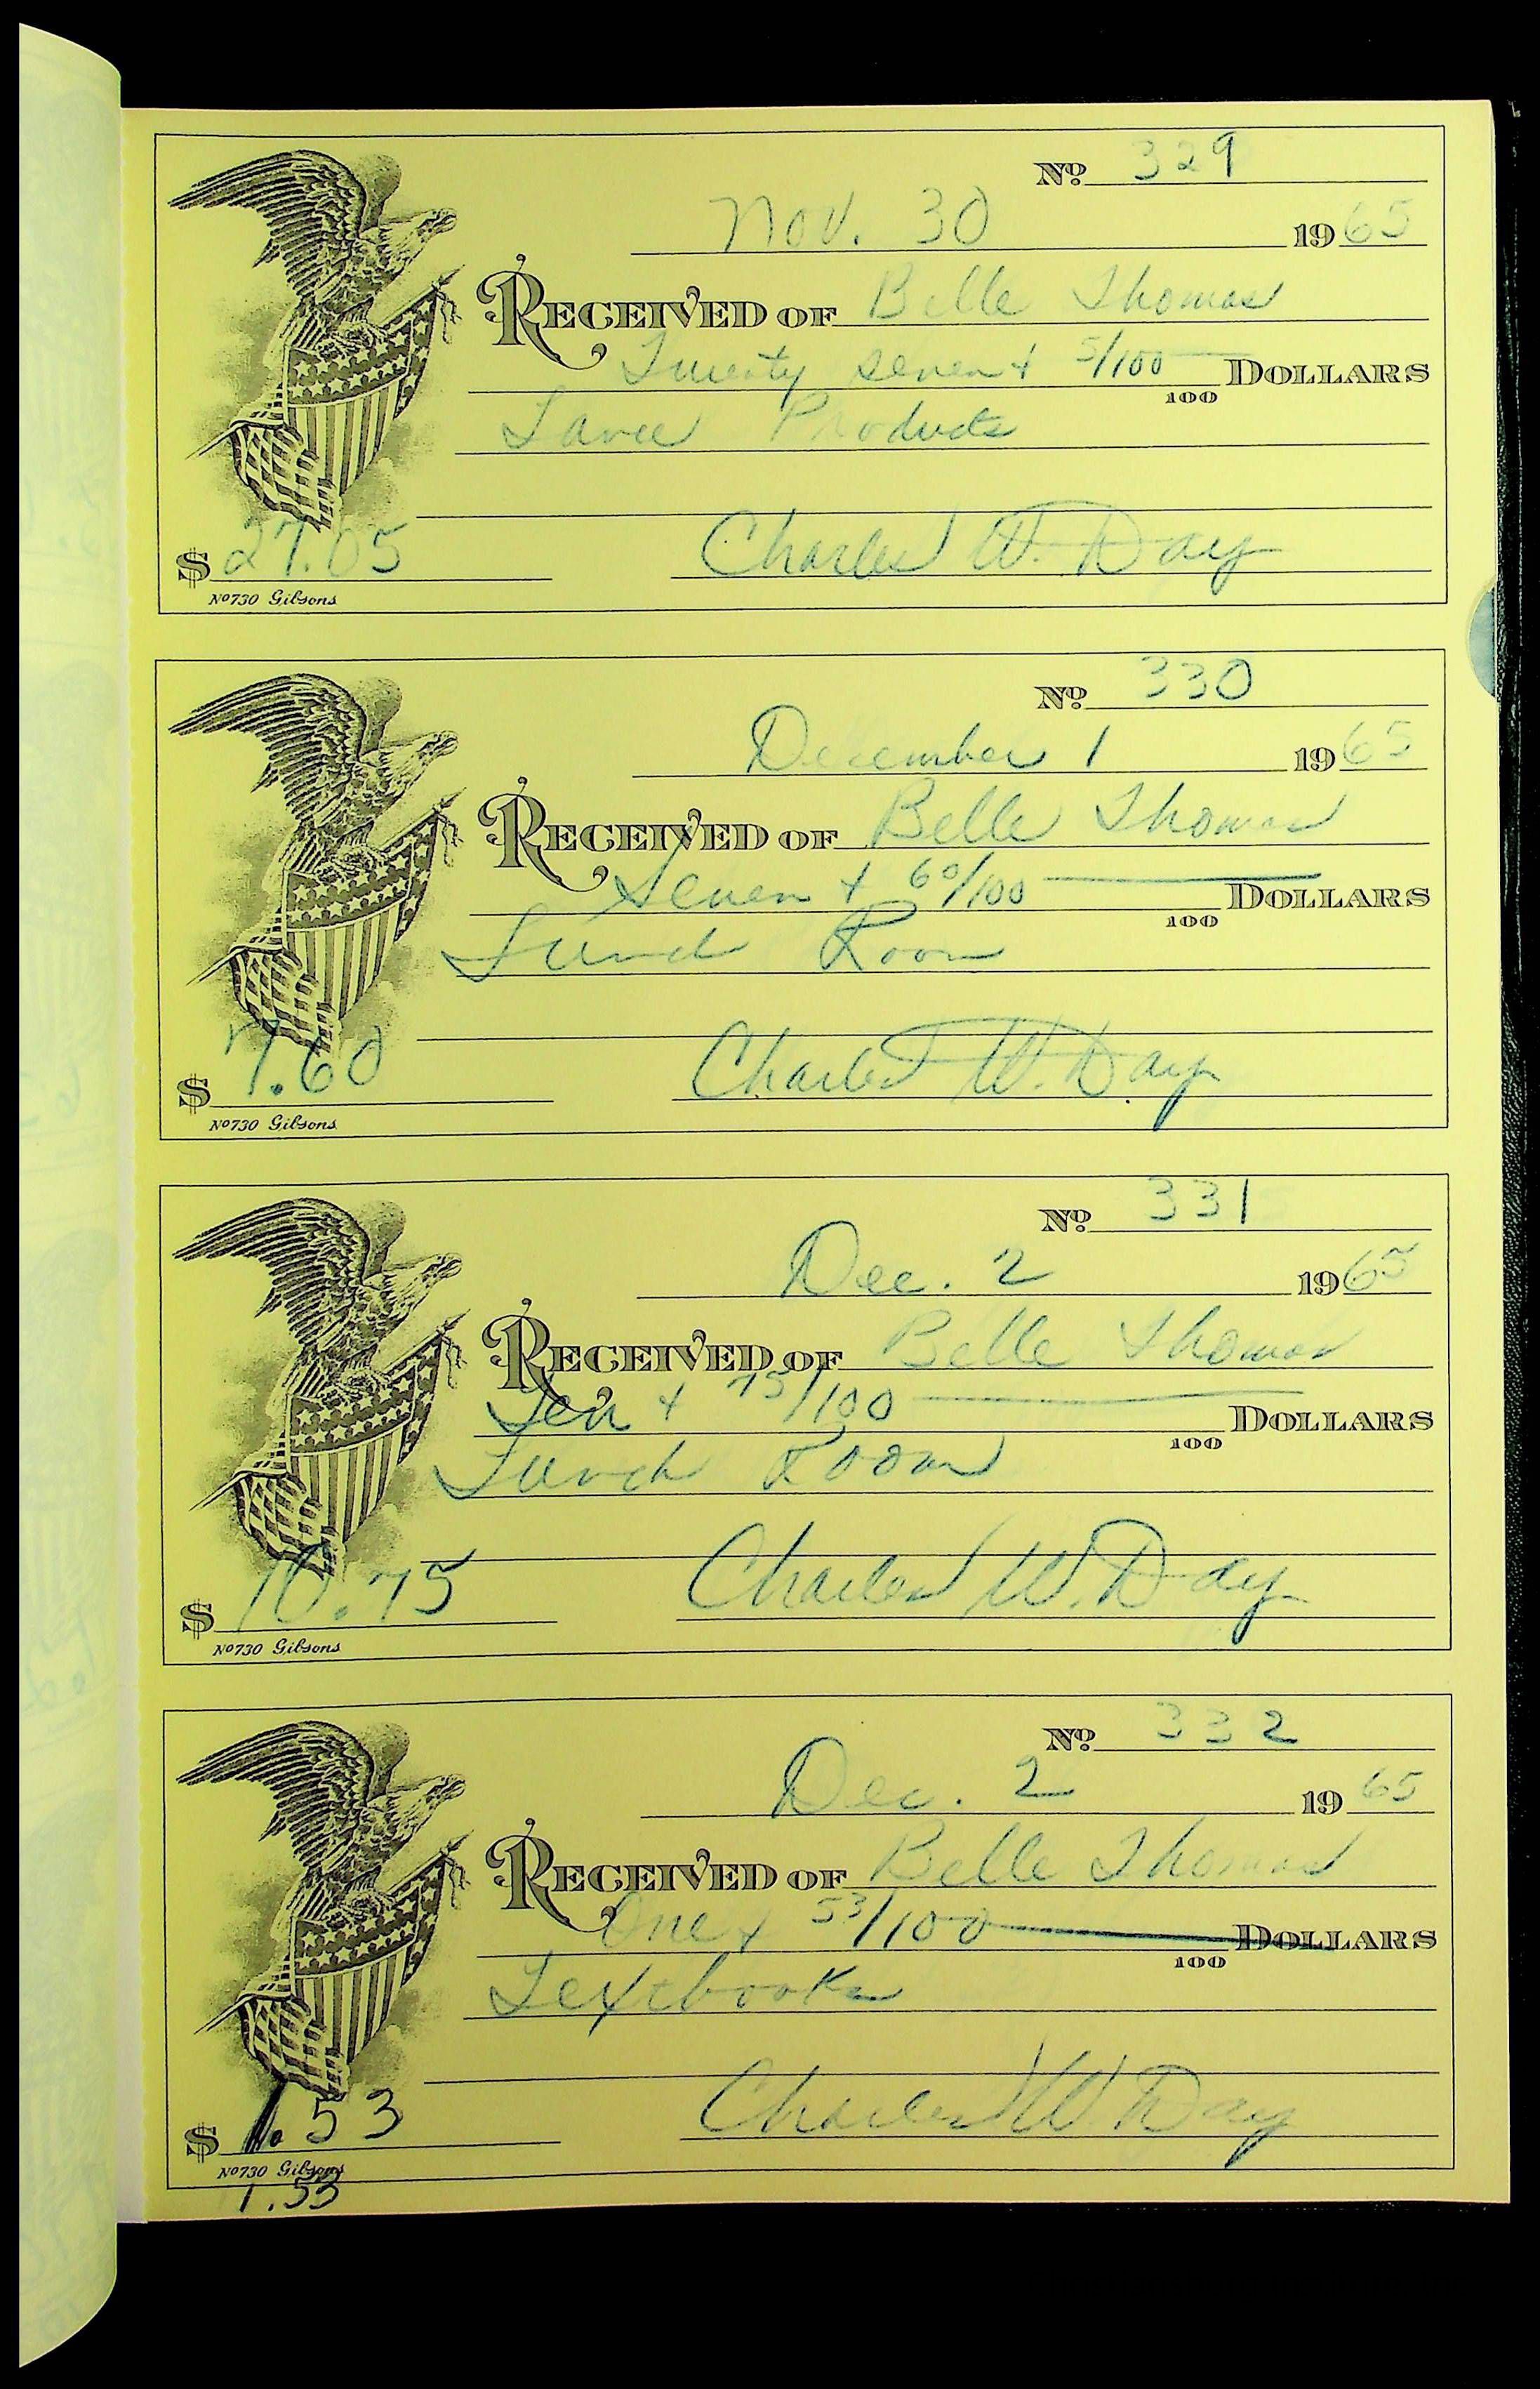 No. 329
Nov. 30 1965
RECEIVED OF Belle Thomas
Twenty seven + 5/100 100 DOLLARS
Lance Products
$ 27.05 Charles W. Day
No 730 Gibsons
No. 330
December 1 1965
RECEIVED OF Belle Thomas
Seven + 60/100 100 DOLLARS
Lunch Room
$ 7.60 Charles W. Day
No 730 Gibsons
No. 331
Dec. 2 1965
RECEIVED OF Belle Thomas
Ten + 75/100 100 DOLLARS
Lunch Room
$ 10.75 Charles W. Day
No 730 Gibsons
No. 332
Dec. 2 1965
RECEIVED OF Belle Thomas
One + 53/100 100 DOLLARS
Textbooks
$ 1.53 Charles W. Day
No 730 Gibsons
1.53